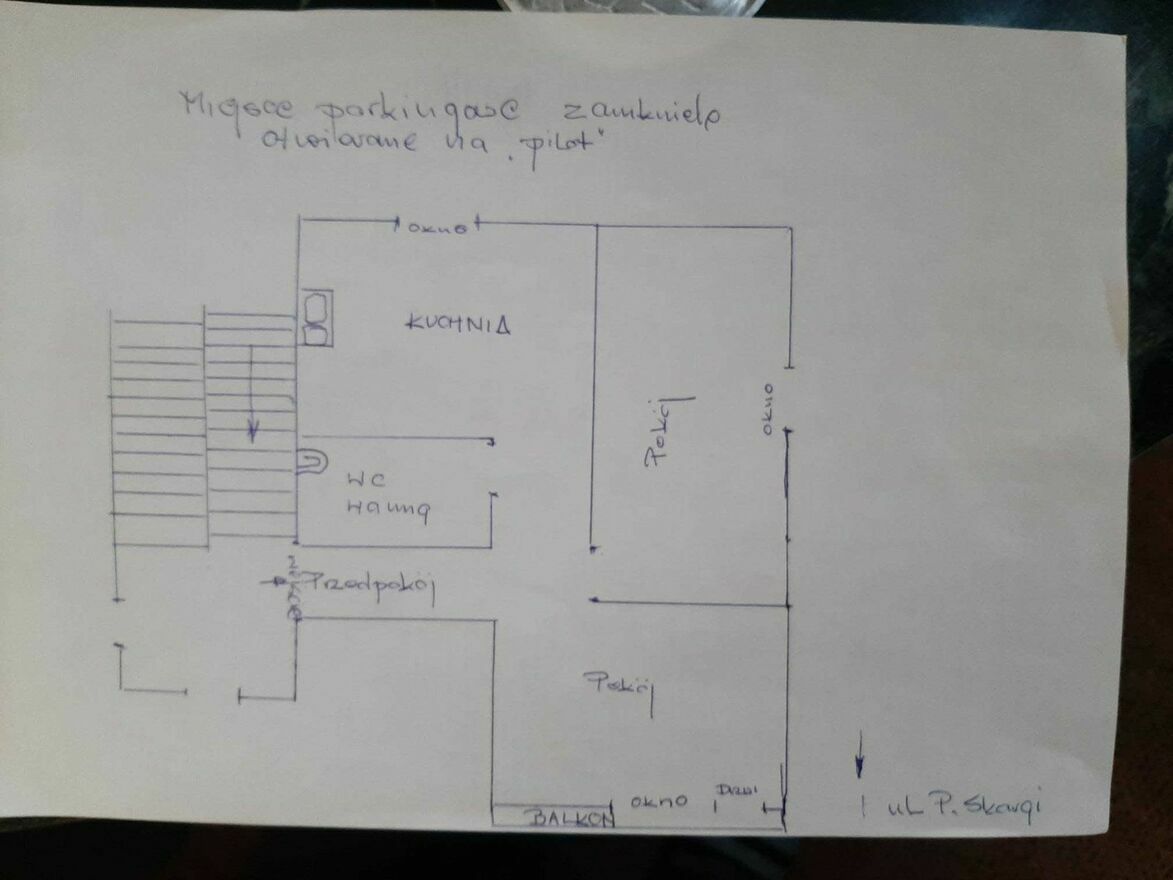 Miejsce parkingowe zamknięte
otwierane na "pilot"
OKNO
KUCHNIA
Pokój
OKNO
WC
Wanną
Przedpokój
Pokój
OKNO
Drzwi
BALKON
ul P. Skargi